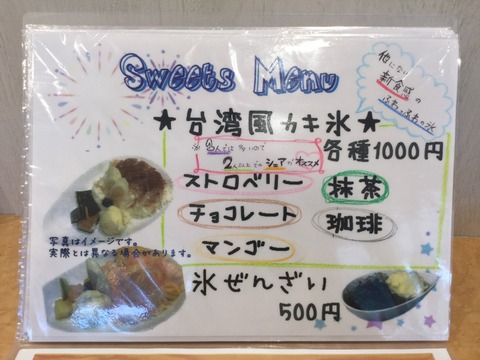 Sweets Menu
他にない
新食感の
ふわっふわの氷
★台湾風カキ氷★
各種1000円
2人で シェアがオススメ
ストロベリー
抹茶
チョコレート
珈琲
マンゴー
写真はイメージです。
実際とは異なる場合があります。
氷ぜんざい
500円